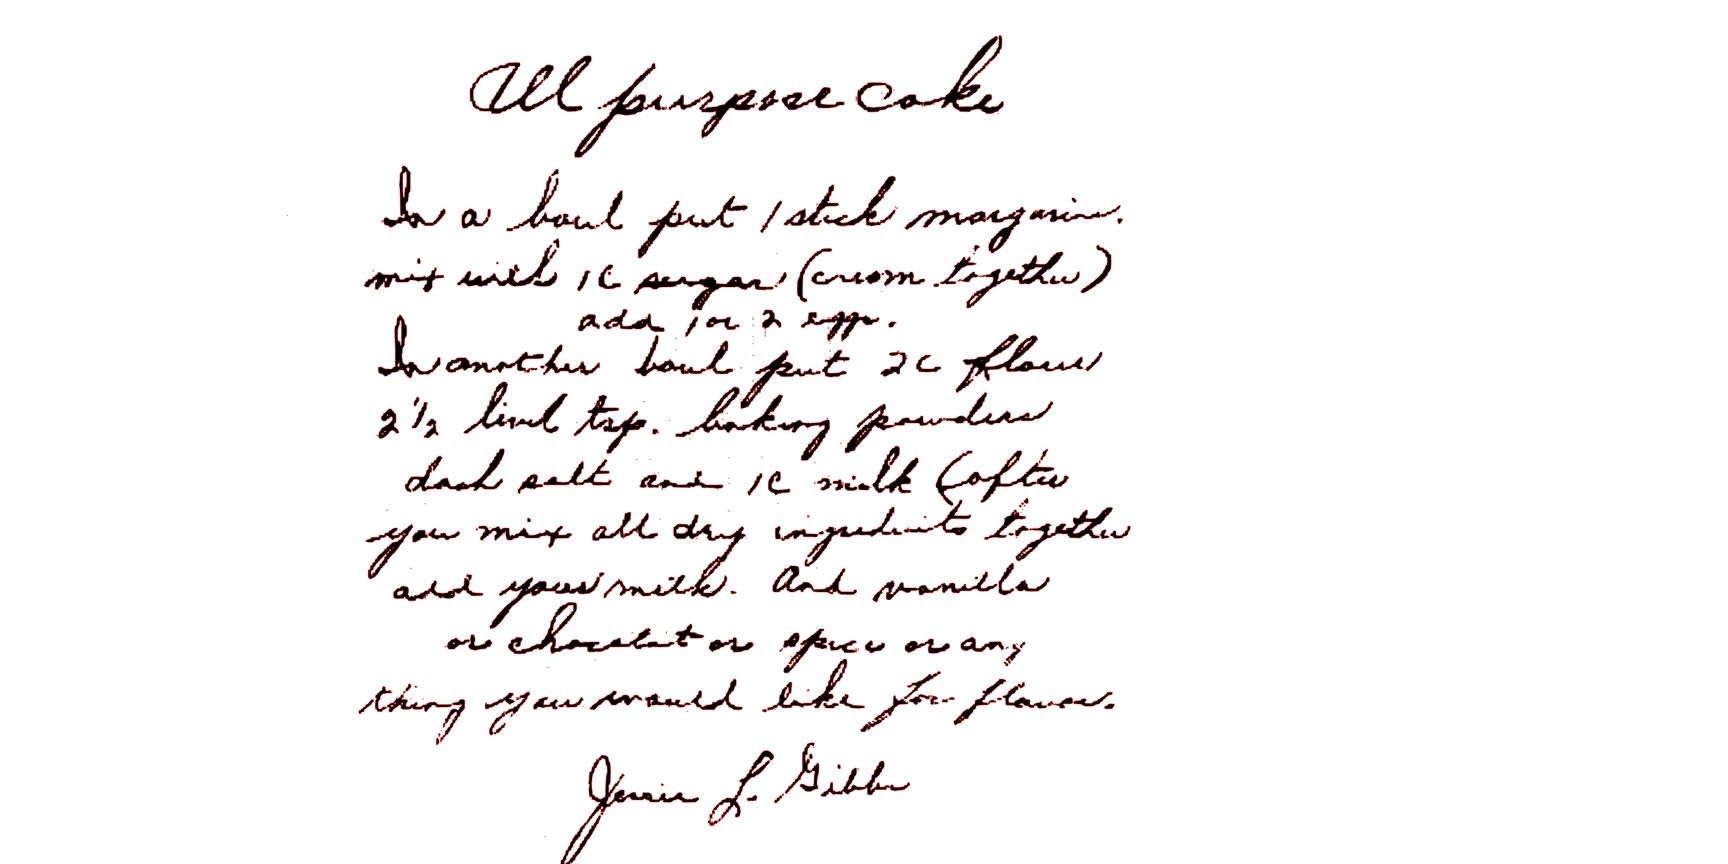 All purpose cake
In a bowl put 1 stick margarine.
mix with 1c sugar (cream together)
add 1 or 2 eggs.
In another bowl put 2c flour
2 1/2 level tsp. baking powder
dash salt and 1c milk (after
you mix all dry ingredients together
add your milk. And vanilla
or chocolat or spice or any
thing you would like for flavor.
Jessie L. Gibbs